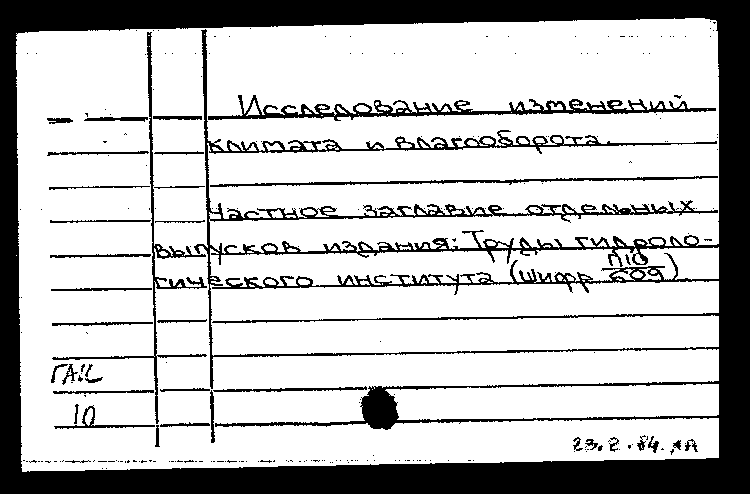 Исследование изменений
климата и влагооборота.
Частное заглавие отдельных
выпусков издания: Труды гидроло-
гического института (шифр П10/609)
ГАК
10
23.2.84.